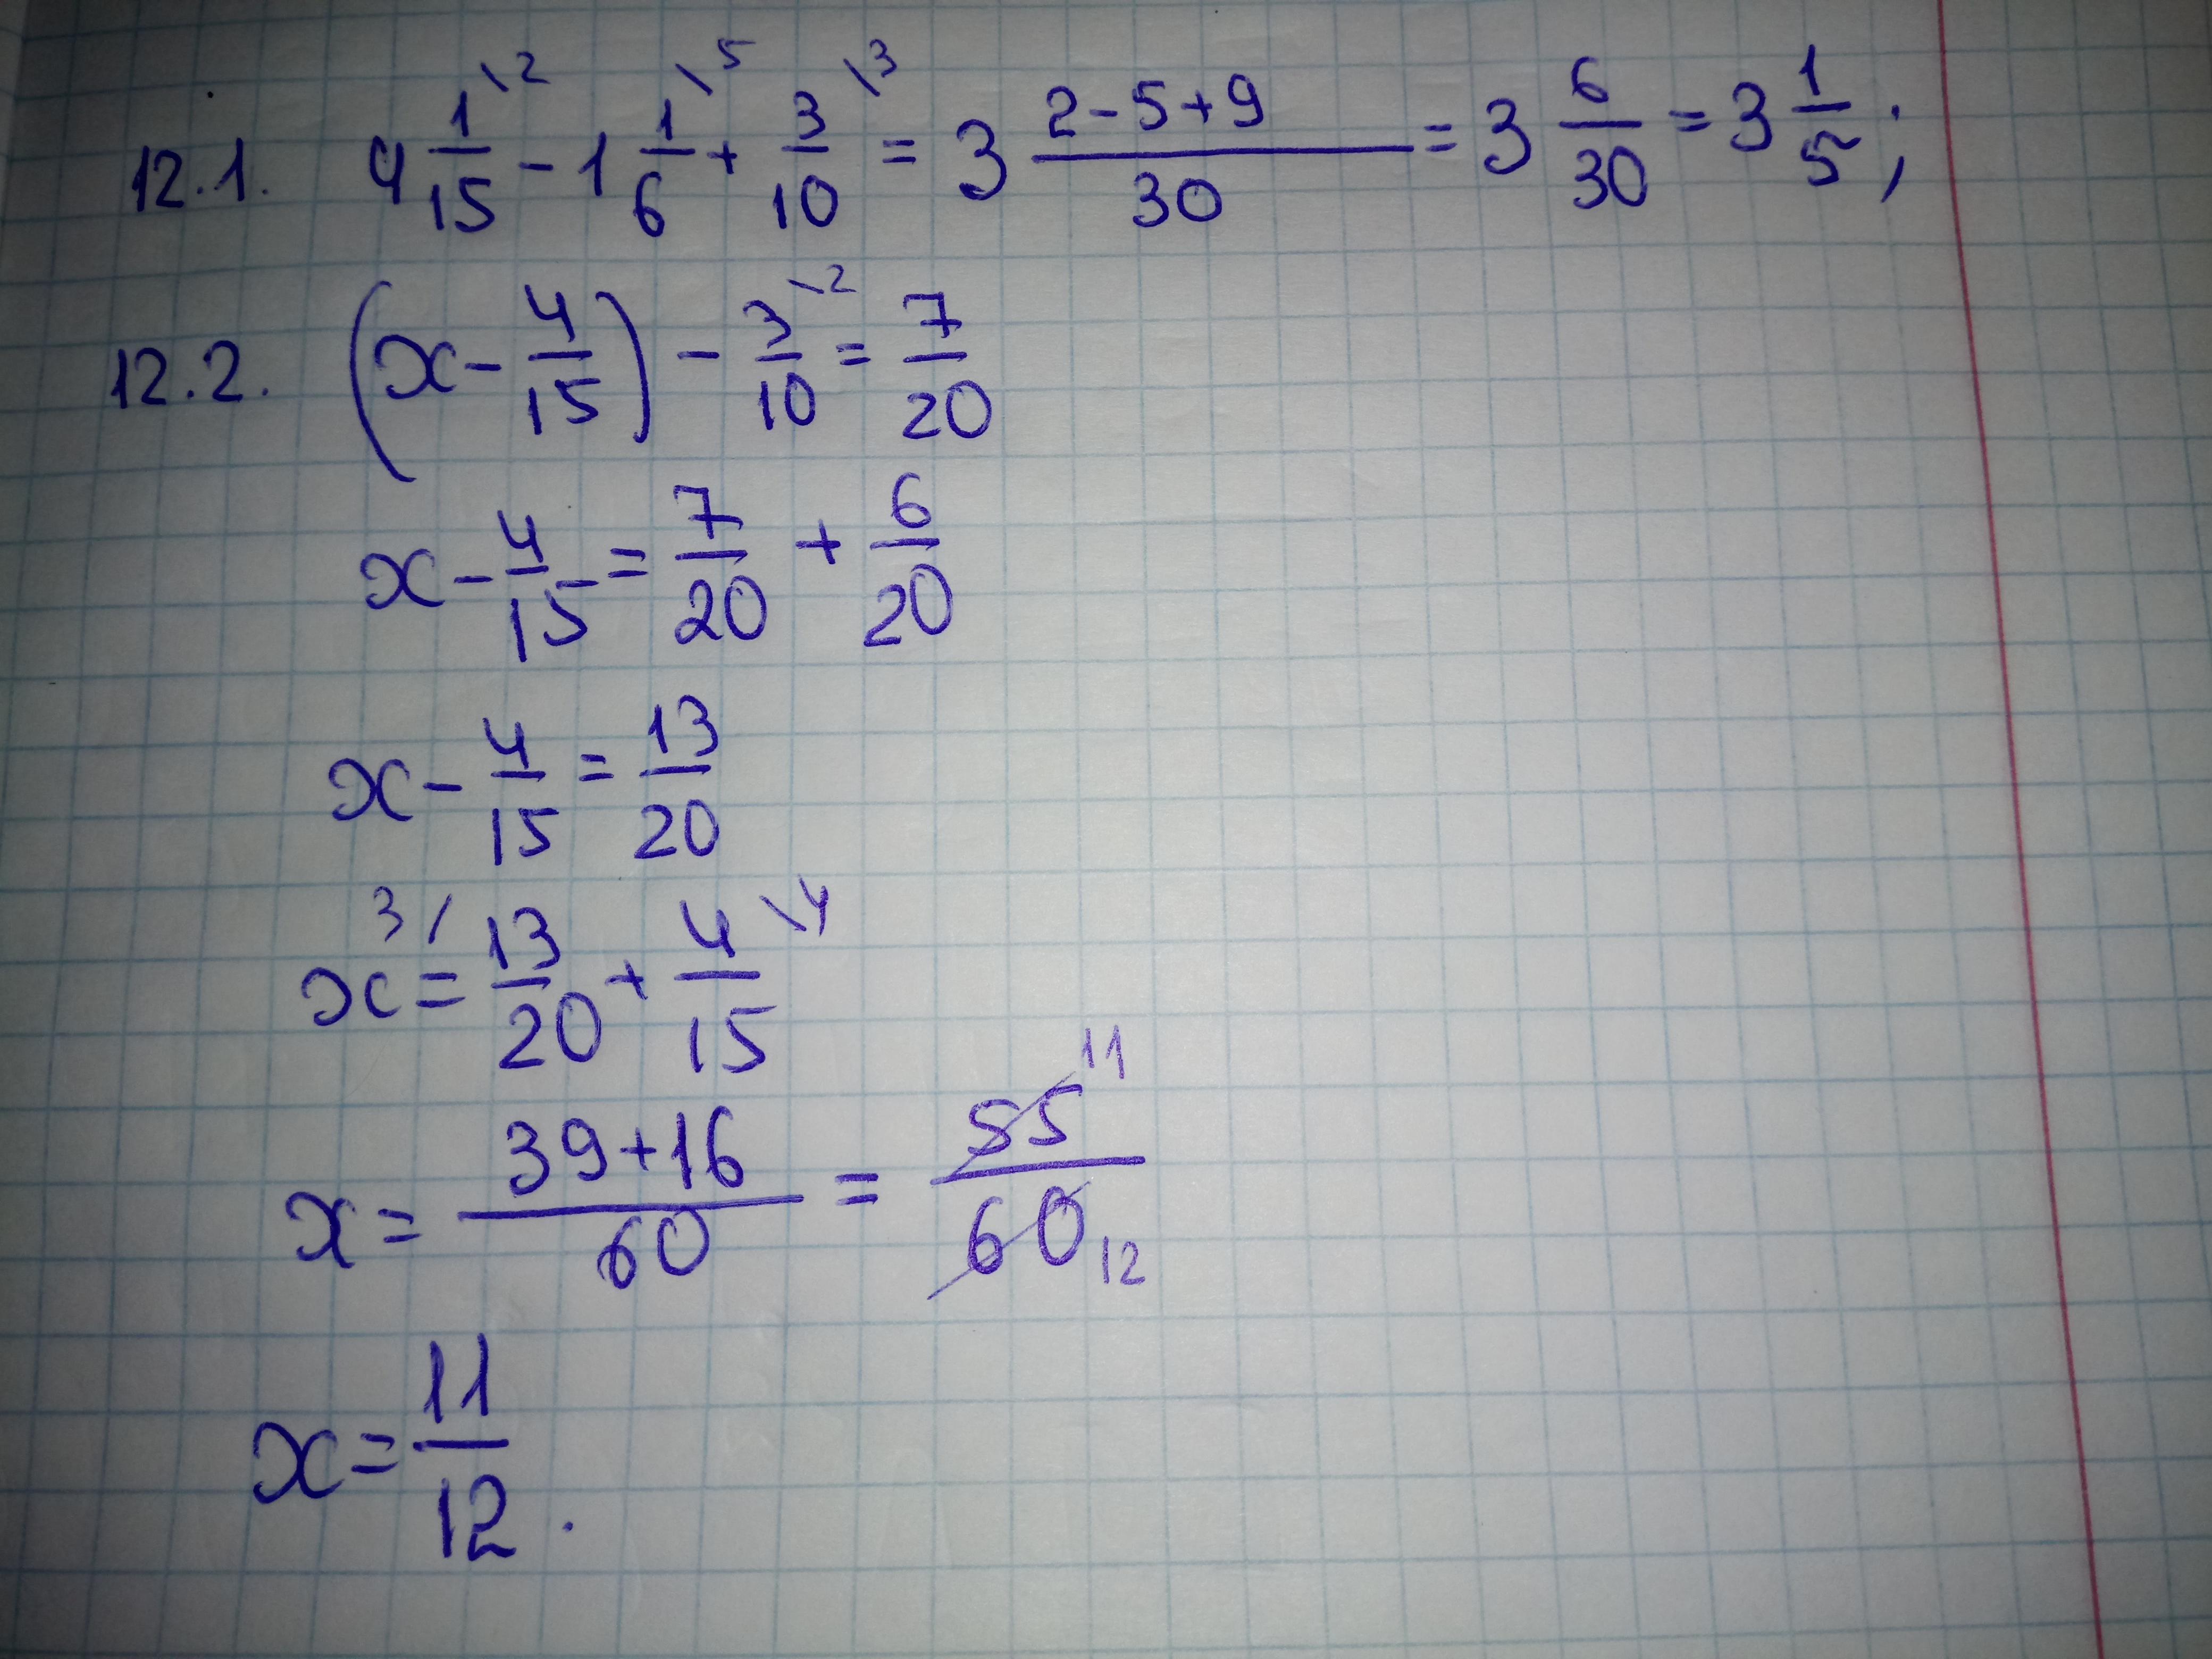 12.1. 4 1/15 \2 - 1 1/6 \5 + 3/10 \3 = 3 (2-5+9)/30 = 3 6/30 = 3 1/5;
12.2. (x - 4/15) - 3/10 \2 = 7/20
x - 4/15 = 7/20 + 6/20
x - 4/15 = 13/20
x = 3/ 13/20 + 4/15 \4
x = (39+16)/60 = 55/60 11 12
x = 11/12.